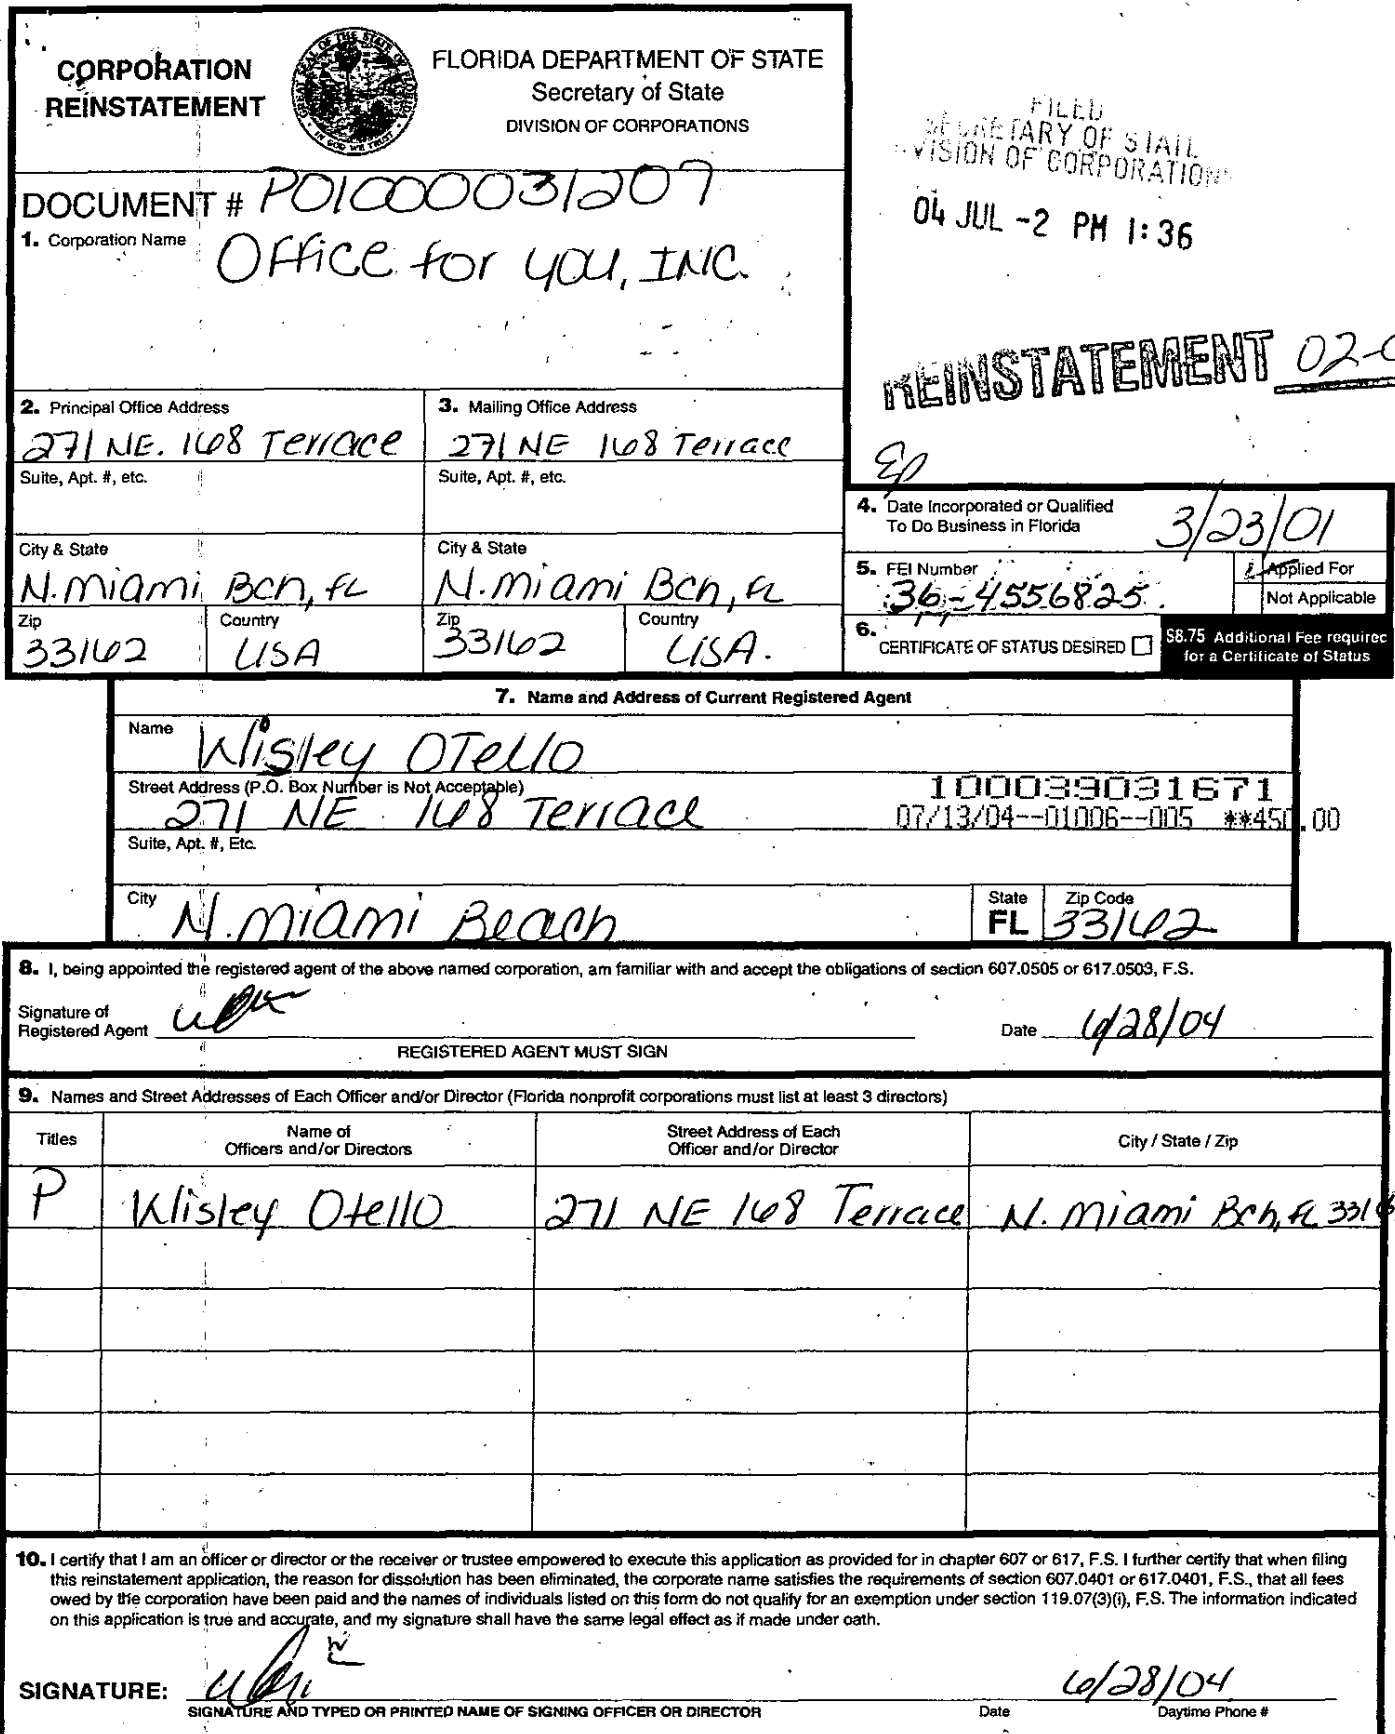 CORPORATION
REINSTATEMENT
FLORIDA DEPARTMENT OF STATE
Secretary of State
DIVISION OF CORPORATIONS
GREAT SEAL OF THE STATE OF FLORIDA
IN GOD WE TRUST
FILED
SECRETARY OF STATE
DIVISION OF CORPORATIONS
04 JUL -2 PM 1:36
DOCUMENT # P01000031207
1. Corporation Name
Office for you, INC.
REINSTATEMENT 02-
2. Principal Office Address
271 NE. 168 Terrace
Suite, Apt. #, etc.
City & State
N. Miami Bch, FL
Zip
33162
Country
USA
3. Mailing Office Address
271 NE 168 Terrace
Suite, Apt. #, etc.
City & State
N. Miami Bch, FL
Zip
33162
Country
USA.
4. Date Incorporated or Qualified
To Do Business in Florida
3/23/01
5. FEI Number
36-4556825
Applied For
Not Applicable
6.
CERTIFICATE OF STATUS DESIRED
$8.75 Additional Fee required
for a Certificate of Status
7. Name and Address of Current Registered Agent
Name
Wisley Otello
Street Address (P.O. Box Number is Not Acceptable)
271 NE 168 Terrace
100039031671
07/13/04--01006--005 **450.00
Suite, Apt. #, Etc.
City
N. Miami Beach
State
FL
Zip Code
33162
8. I, being appointed the registered agent of the above named corporation, am familiar with and accept the obligations of section 607.0505 or 617.0503, F.S.
Signature of
Registered Agent
Date 6/28/04
REGISTERED AGENT MUST SIGN
9. Names and Street Addresses of Each Officer and/or Director (Florida nonprofit corporations must list at least 3 directors)
Titles
Name of
Officers and/or Directors
Street Address of Each
Officer and/or Director
City / State / Zip
P Wisley Otello 271 NE 168 Terrace N. Miami Bch, FL 3316
10. I certify that I am an officer or director or the receiver or trustee empowered to execute this application as provided for in chapter 607 or 617, F.S. I further certify that when filing
this reinstatement application, the reason for dissolution has been eliminated, the corporate name satisfies the requirements of section 607.0401 or 617.0401, F.S., that all fees
owed by the corporation have been paid and the names of individuals listed on this form do not qualify for an exemption under section 119.07(3)(i), F.S. The information indicated
on this application is true and accurate, and my signature shall have the same legal effect as if made under oath.
SIGNATURE:
6/28/04
SIGNATURE AND TYPED OR PRINTED NAME OF SIGNING OFFICER OR DIRECTOR
Date
Daytime Phone #